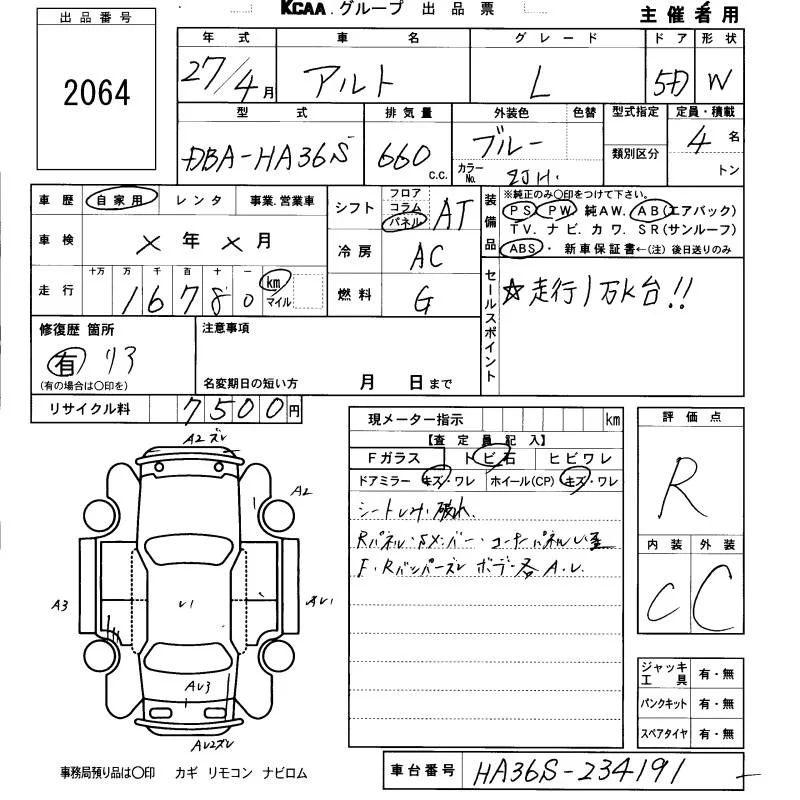 KCAA.グループ 出品票
主催者用
出品番号
2064
年式 車名 グレード ドア 形状
27/4月 アルト L 5D W
型式 排気量 外装色 色替 型式指定 定員・積載
DBA-HA36S 660 c.c. ブルー 4名
カラーNo. ZJH. 類別区分 トン
車歴 自家用 レンタ 事業.営業車
車検 ×年×月
走行 十万 万 千 百 十 一
16780 km マイル
シフト フロア コラム パネル AT
冷房 AC
燃料 G
装備品 ※純正のみ〇印をつけて下さい。
PS PW 純AW. AB(エアバック)
TV. ナビ. カワ. SR(サンルーフ)
ABS・ 新車保証書←(注) 後日送りのみ
セールスポイント ☆走行1万K台!!
修復歴 箇所
有 リア
(有の場合は〇印を)
注意事項
名変期日の短い方 月 日まで
リサイクル料 7500円
現メーター指示 km
【査定員記入】
Fガラス トビ石 ヒビワレ
ドアミラー キズ・ワレ ホイール(CP) キズ・ワレ
シート 破れ.
Rパネル・ ・コーナーパネルU歪
F・Rバンパーズレ ボデー各A.U.
評価点
R
内装 外装
C C
A2ズレ
A2
A3
U1
AU1
AU3
AU2ズレ
ジャッキ工具 有・無
パンクキット 有・無
スペアタイヤ 有・無
事務局預り品は〇印 カギ リモコン ナビロム
車台番号 HA36S-234191